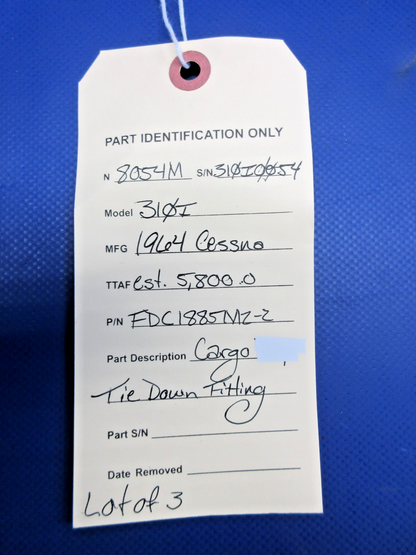 PART IDENTIFICATION ONLY
N 8054M S/N 310I0054
Model 310I
MFG 1964 Cessna
TTAF est. 5,800.0
P/N FDC1885M2-2
Part Description Cargo
Tie Down Fitting
Part S/N
Date Removed
Lot of 3